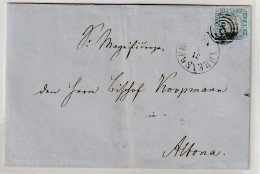 Sr Magnificenz
dem Herrn Bischof Koopmann
in
Altona.